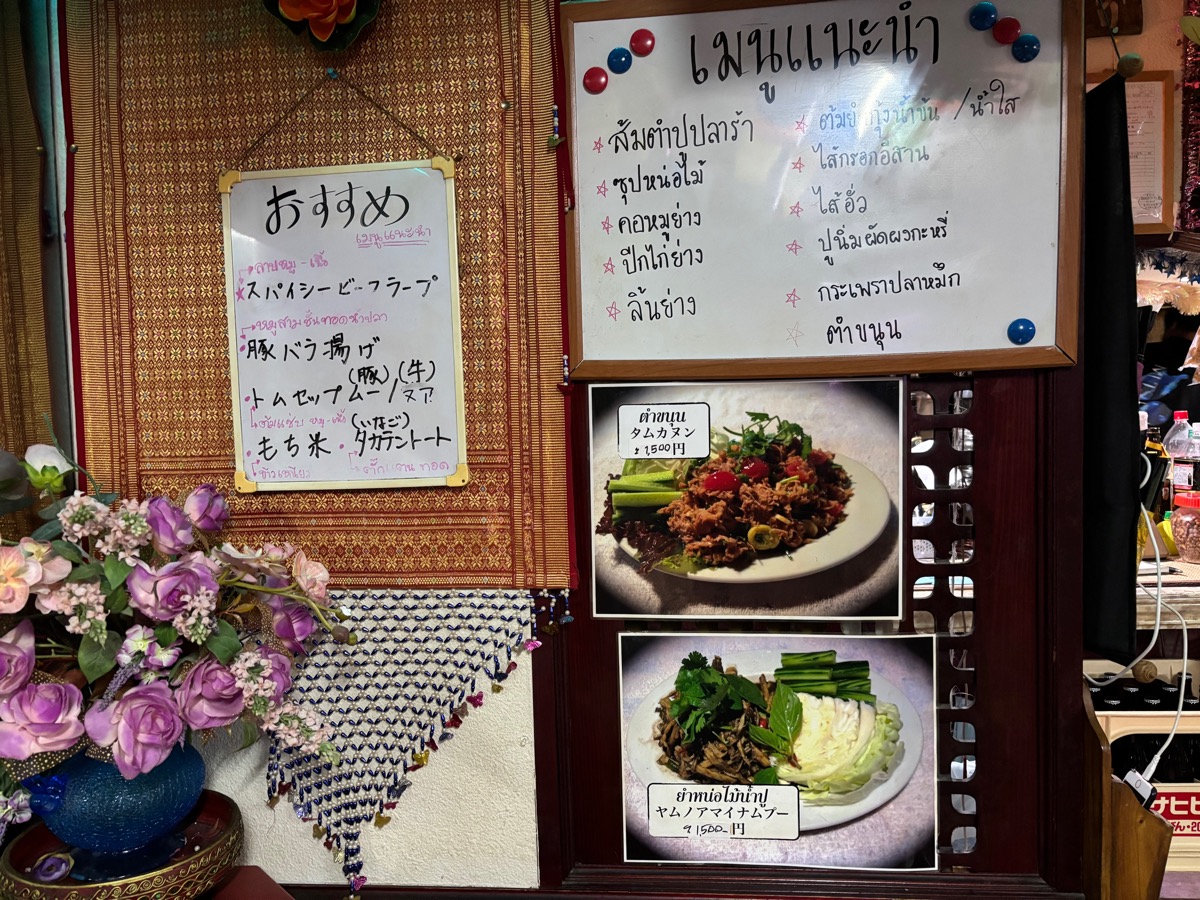 おすすめ
เมนูแนะนำ
ลาบหมู-เนื้อ
スパイシービーフラープ
หมูสามชั้นทอดน้ำปลา
豚バラ揚げ
トムセップ(豚)ムー/(牛)ヌア
ต้มแซ่บ หมู-เนื้อ
もち米 ・(いなご)タカテントート
ข้าวเหนียว
ตั๊กแตน ทอด
เมนูแนะนำ
ส้มตำปูปลาร้า
ซุปหน่อไม้
คอหมูย่าง
ปีกไก่ย่าง
ลิ้นย่าง
ต้มยำกุ้งน้ำข้น /น้ำใส
ไส้กรอกอีสาน
ไส้อั่ว
ปูนิ่มผัดผงกะหรี่
กระเพราปลาหมึก
ตำขนุน
ตำขนุน
タムカヌン
1,500円
ยำหน่อไม้น้ำปู
ヤムノアマイナムプー
1,500円